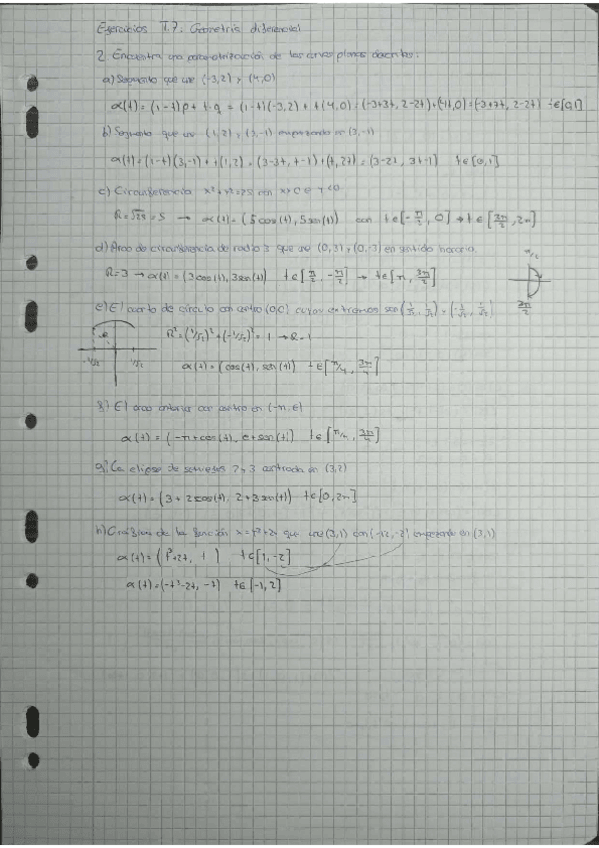 Ejercicios T.7: Geometría diferencial
2. Encuentra una parametrización de las curvas planas
a) Segmento que une (-3,2) y (4,0)
α(t) = (1-t)p + t·q = (1-t)(-3,2) + t(4,0) = (-3+3t, 2-2t)+(4t,0) = (-3+7t, 2-2t) t∈[0,1]
b) Segmento que une (1,2) y (3,-1) empezando en (3,-1)
α(t) = (1-t)(3,-1) + t(1,2) = (3-3t, t-1) + (t, 2t) = (3-2t, 3t-1) t∈[0,1]
c) Circunferencia x²+y²=25 con x>0 e y<0
R=√25 = 5 → α(t) = (5cos(t), 5sen(t)) con t∈[-π/2, 0] → t∈[3π/2, 2π]
d) Arco de circunferencia de radio 3 que une (0,3) y (0,-3) en sentido horario.
R=3 → α(t) = (3cos(t), 3sen(t)) t∈[π/2, -π/2] → t∈[π, 3π/2]
π/2
3π/2
e) El cuarto de círculo con centro (0,0) cuyos extremos son (1/√2, 1/√2) (-1/√2, 1/√2)
R
-1/√2 1/√2
R² = (1/√2)² + (-1/√2)² = 1 → R=1
α(t) = (cos(t), sen(t)) t∈[π/4, 3π/4]
f) El arco anterior con centro en (-π, e)
α(t) = (-π+cos(t), e+sen(t)) t∈[π/4, 3π/4]
g) La elipse de semiejes 2 y 3 centrada en (3,2)
α(t) = (3+2cos(t), 2+3sen(t)) t∈[0,2π]
h) Gráfica de la función x=y³+2y que une (3,1) con (-12,-2) empezando en (3,1)
α(t) = (t³+2t, t) t∈[1,-2]
α(t) = (-t³-2t, -t) t∈[-1,2]